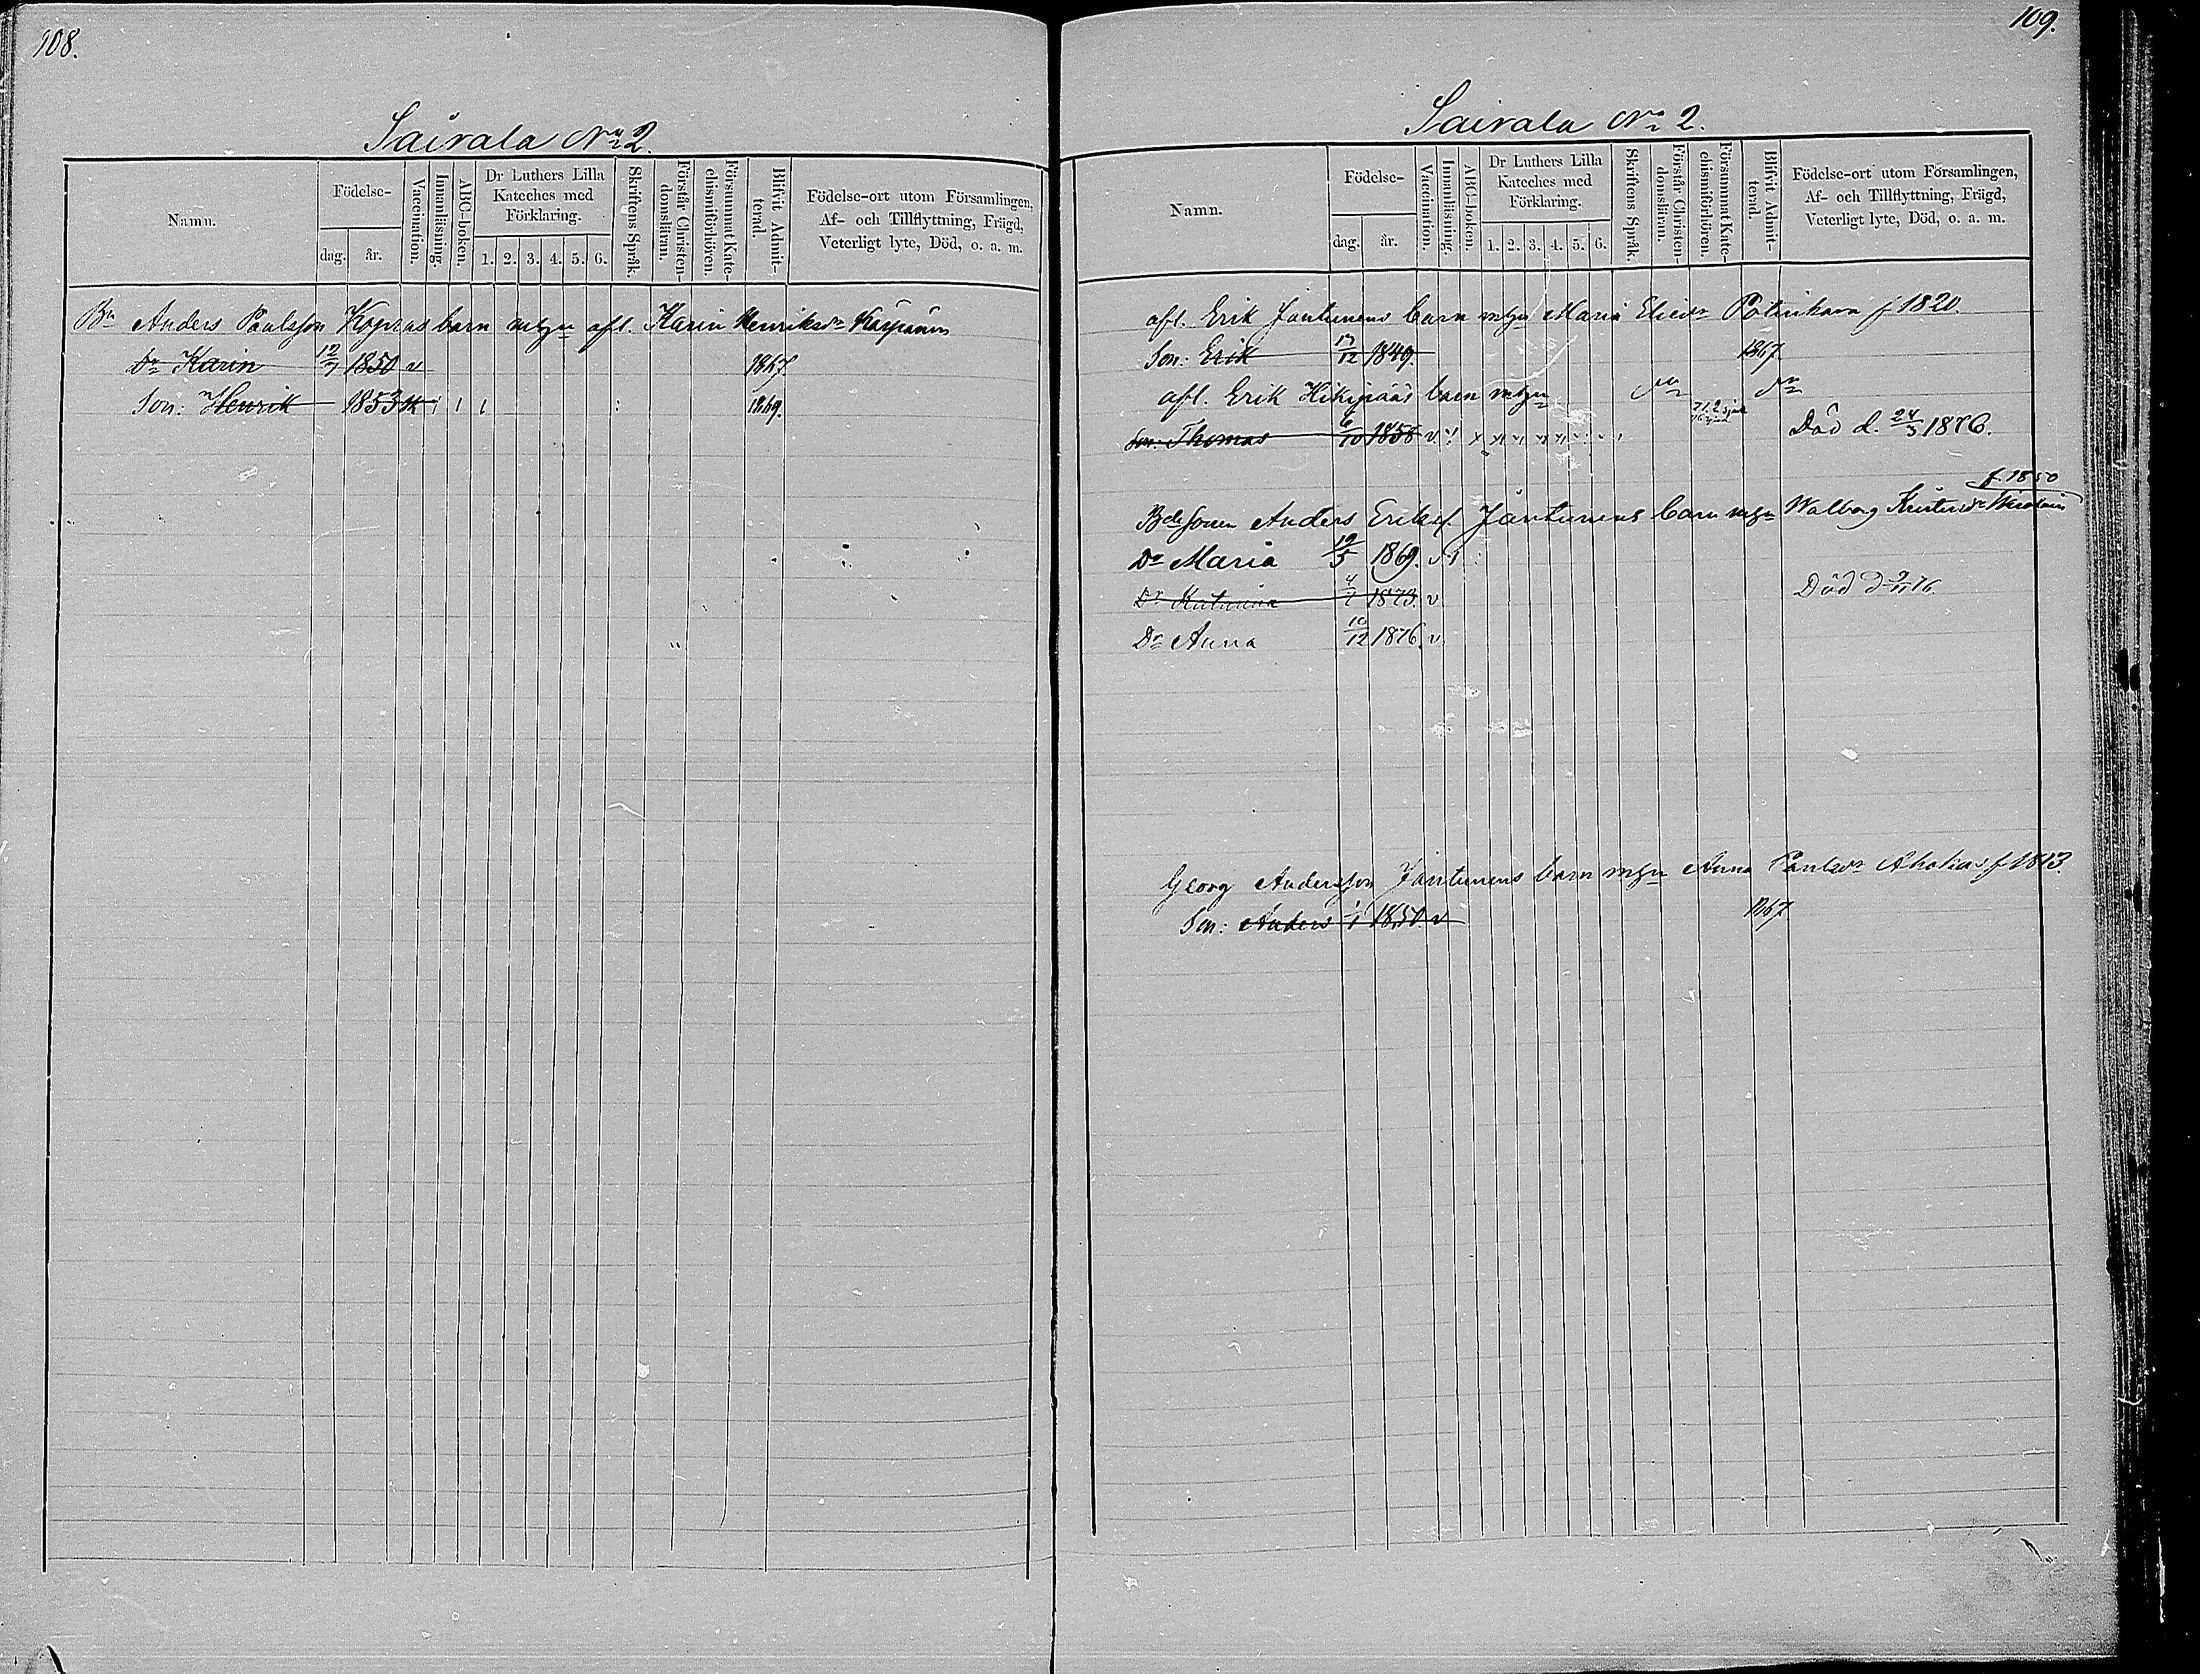 108.
Sairala No 2.
Namn.
Födelse-
dag.
år.
Vaccination.
Innanläsning.
ABC-boken.
Dr Luthers Lilla
Kateches med
Förklaring.
1. 2. 3. 4. 5. 6.
Skriftens Språk.
Förstår Christen-
domsläran.
Försummat Kate-
chismiförhören.
Blifvit Admit-
terad.
Födelse-ort utom Församlingen,
Af- och Tillflyttning, Frägd,
Veterligt lyte, Död, o. a. m.
Bn Anders Paulsson Kopras barn afl. Karin Henriksdr
Dr Karin 12/7 1850 v 1867.
Son: Henrik 1853 1869.
109.
Sairala No 2.
Namn.
Födelse-
dag.
år.
Vaccination.
Innanläsning.
ABC-boken.
Dr Luthers Lilla
Kateches med
Förklaring.
1. 2. 3. 4. 5. 6.
Skriftens Språk.
Förstår Christen-
domsläran.
Försummat Kate-
chismiförhören.
Blifvit Admit-
terad.
Födelse-ort utom Församlingen,
Af- och Tillflyttning, Frägd,
Veterligt lyte, Död, o. a. m.
afl. Erik Jantunens barn Maria f 1820.
Son: Erik 1849. 1867.
afl. Erik Hikipääs barn
Son: Thomas 6/10 1858 v Död d. 24/5 1876.
f. 1850
Bdesonen Anders Eriks. Jantunens barn Walborg
Dr Maria 12/5 1869. v
Dr Katarina 1873. v Död
Dr Anna 10/12 1876. v
Georg Andersson Jantunens barn Anna Paulsdr f 1813.
Son: Anders 1850. v 1867